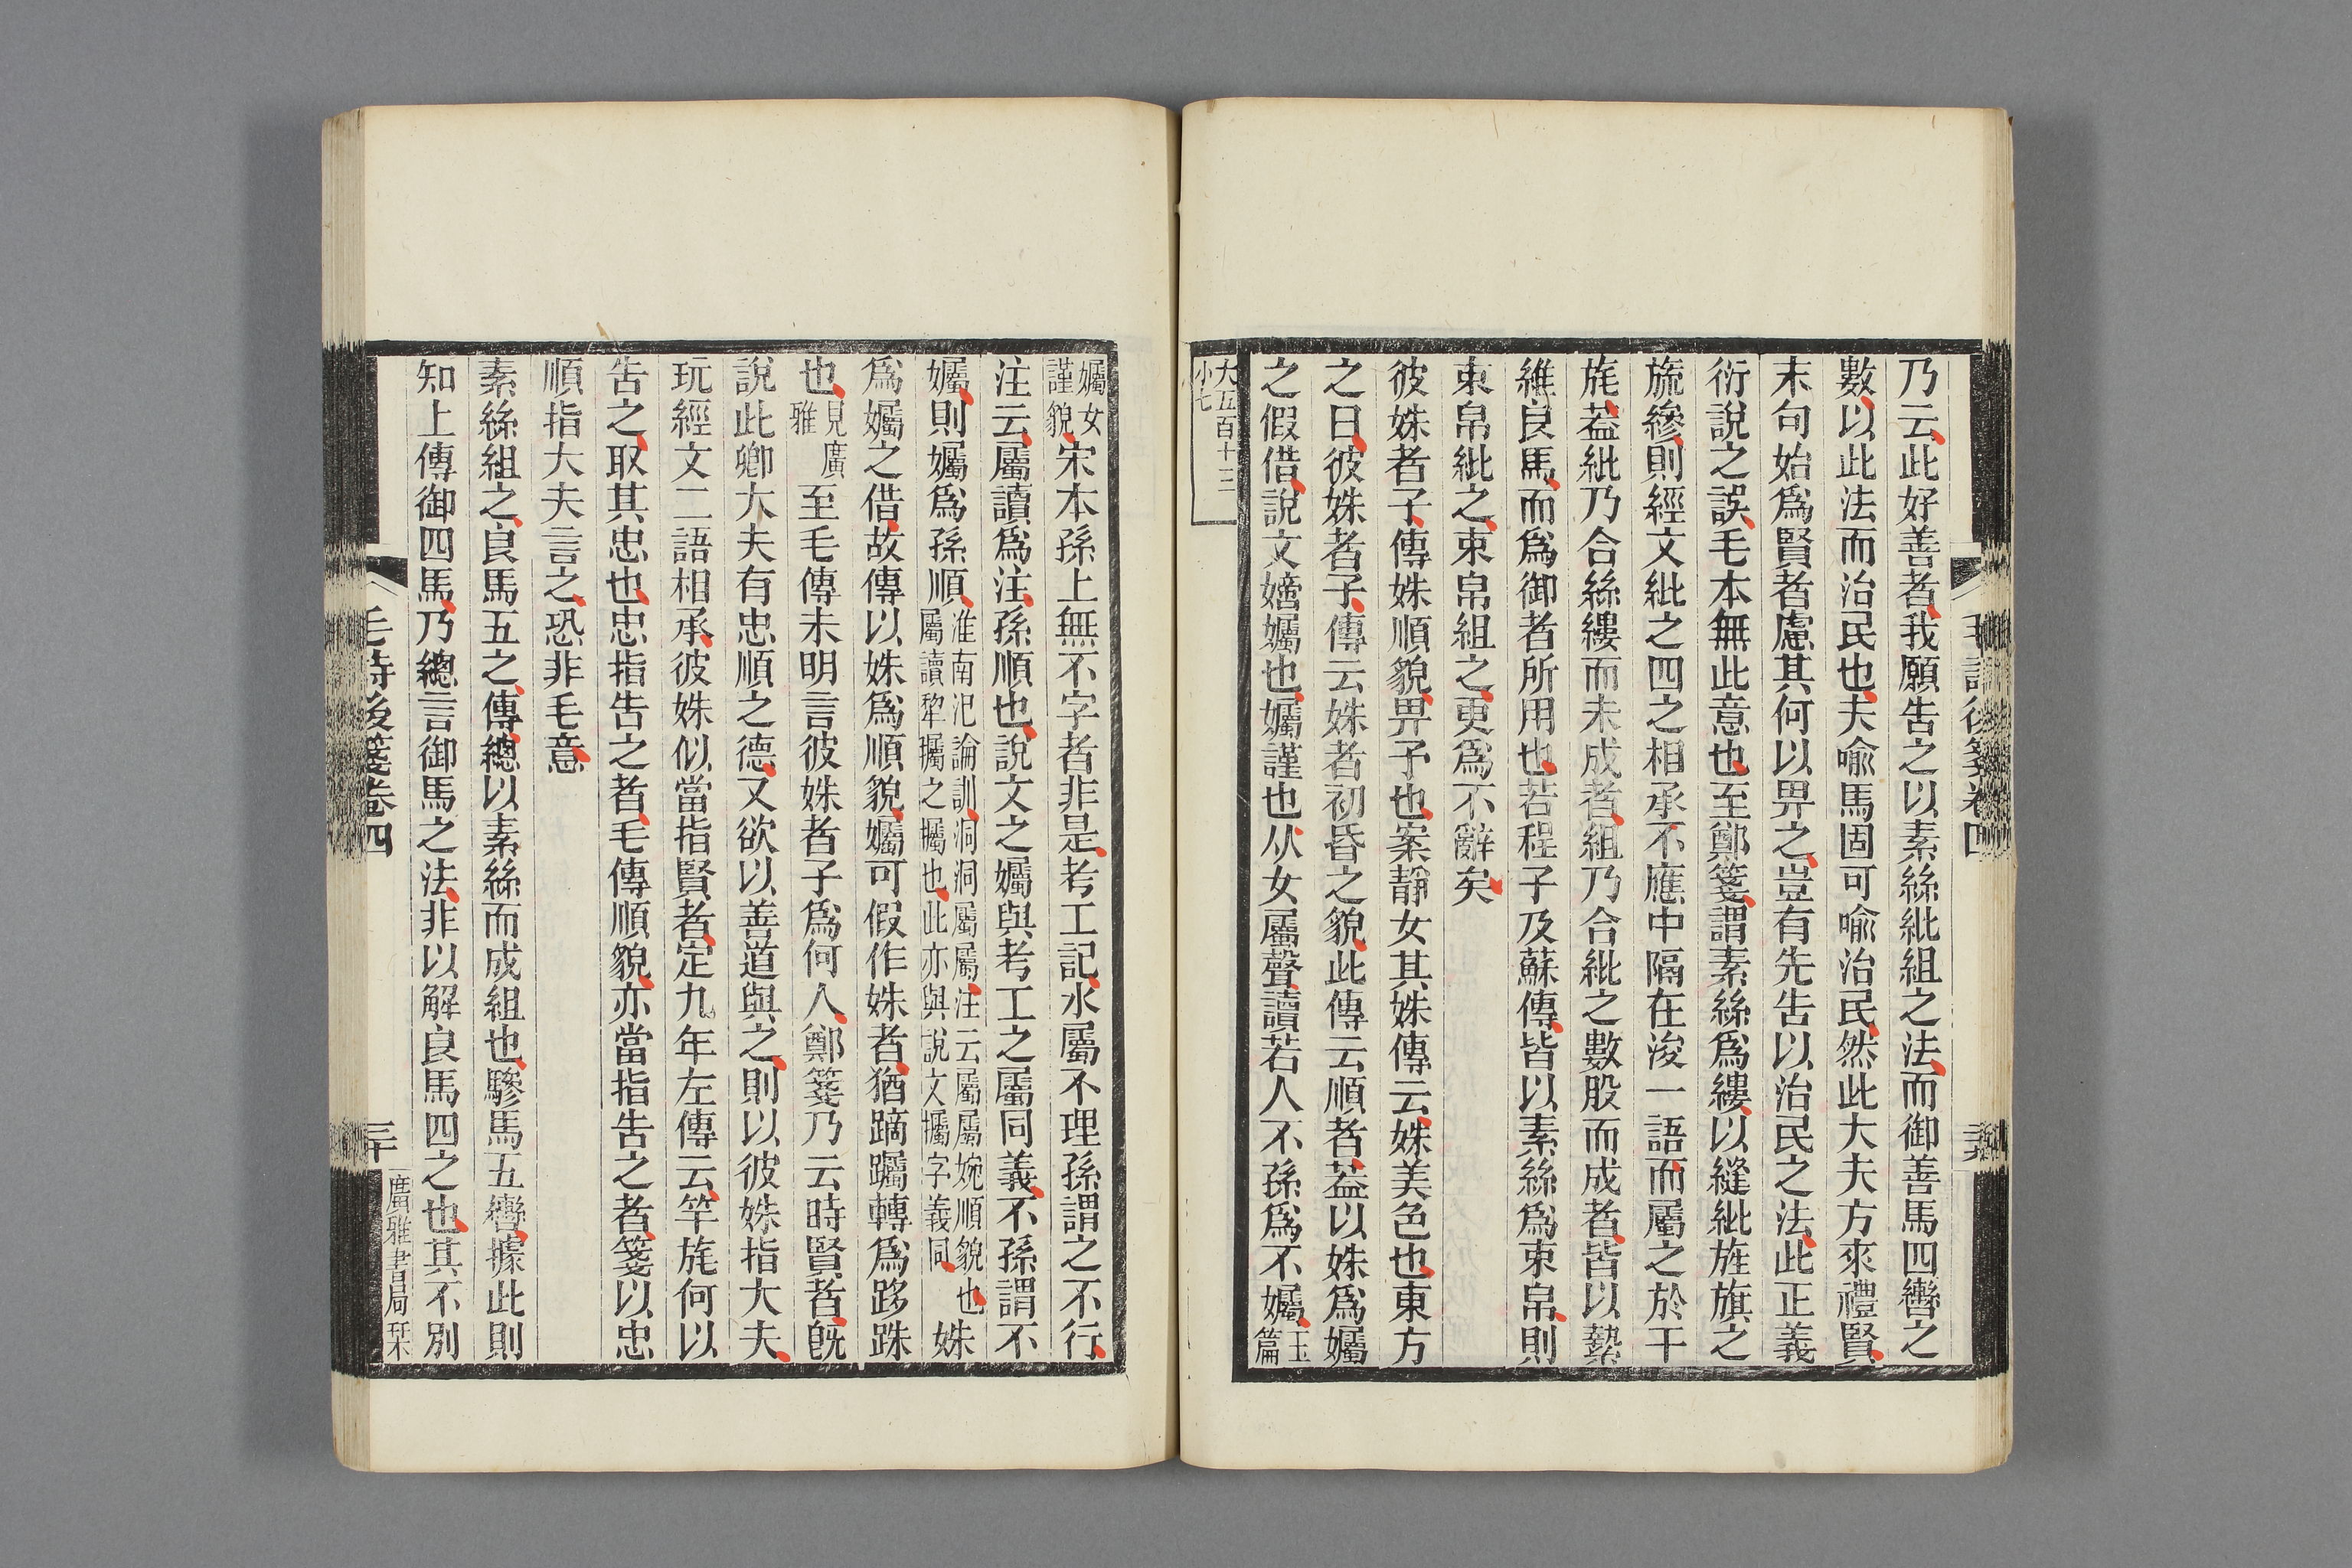 乃云此好善者我願告之以素絲紕組之法而御善馬四轡之
數以此法而治民也夫喻馬固可喻治民然此大夫方來禮賢
末句始爲賢者慮其何以畀之豈有先告以治民之法此正義
衍說之誤毛本無此意也至鄭箋謂素絲爲縷以縫紕旌旗之
旒縿則經文紕之四之相承不應中隔在浚一語而屬之於干
旄葢紕乃合絲縷而未成者組乃合紕之數股而成者皆以縶
維良馬而爲御者所用也若程子及蘇傳皆以素絲爲束帛則
束帛紕之束帛組之更爲不辭矣
彼姝者子傳姝順貌畀予也案靜女其姝傳云姝美色也東方
之日彼姝者子傳云姝者初昏之貌此傳云順者葢以姝爲孎
之假借說文嫧孎也孎謹也从女屬聲讀若人不孫爲不孎玉篇
大五百十三
小七
孎女謹貌宋本孫上無不字者非是考工記水屬不理孫謂之不行
注云屬讀爲注孫順也說文之孎與考工之屬同義不孫謂不
孎則孎爲孫順淮南氾論訓洞洞屬屬注云屬屬婉順貌也屬讀犂攦之攦也此亦與說文孎字義同姝
爲孎之借故傳以姝爲順貌孎可假作姝者猶蹢躅轉爲跢跦
也見廣雅至毛傳未明言彼姝者子爲何人鄭箋乃云時賢者旣
說此卿大夫有忠順之德又欲以善道與之則以彼姝指大夫
玩經文二語相承彼姝似當指賢者定九年左傳云竿旄何以
告之取其忠也忠指告之者毛傳順貌亦當指告之者箋以忠
順指大夫言之恐非毛意
素絲組之良馬五之傳總以素絲而成組也驂馬五轡據此則
知上傳御四馬乃總言御馬之法非以解良馬四之也其不別
毛詩後箋卷四
三十
廣雅書局栞